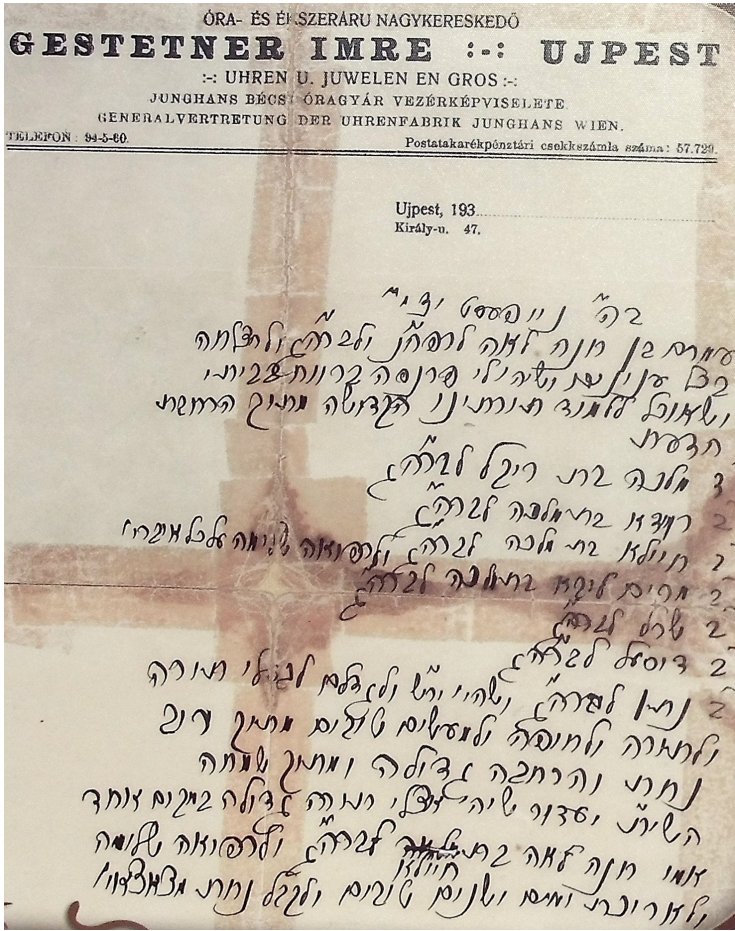 ÓRA- ÉS ÉKSZERÁRU NAGYKERESKEDŐ
GESTETNER IMRE :-: UJPEST
:-: UHREN U. JUWELEN EN GROS :-:
JUNGHANS BÉCSI ÓRAGYÁR VEZÉRKÉPVISELETE.
GENERALVERTRETUNG DER UHRENFABRIK JUNGHANS WIEN.
TELEFON : 94-5-60. Postatakarékpénztári csekkszámla száma: 57.729.
Ujpest, 193
Király-u. 47.
בה"
עמרם בן חנה לאה ולברה"ג ולהצלחה
בכל ענינים ושיהי' לי פרנסה ברווח
ושאוכל ללמוד תורתינו הקדושה מתוך הרחבת
הדעת
מלכה בת ריקל לברה"ג
בת מלכה לברה"ג
חיילא בת מלכה לברה"ג ולרפואה שלימה
מרים בת מלכה לברה"ג
לברה"ג
לברה"ג
נתן לברה"ג ולגדלם תורה
ולתורה ולחופה ולמעשים טובים מתוך
נחת והרחבה גדולה ומתוך שמחה
השי"ת יעזור שיהי' אצלי תורה גדולה במקום אחד
אמי חנה לאה בת חיילא לברה"ג ולרפואה שלימה
ולאריכת ימים ושנים טובים ולקבל נחת